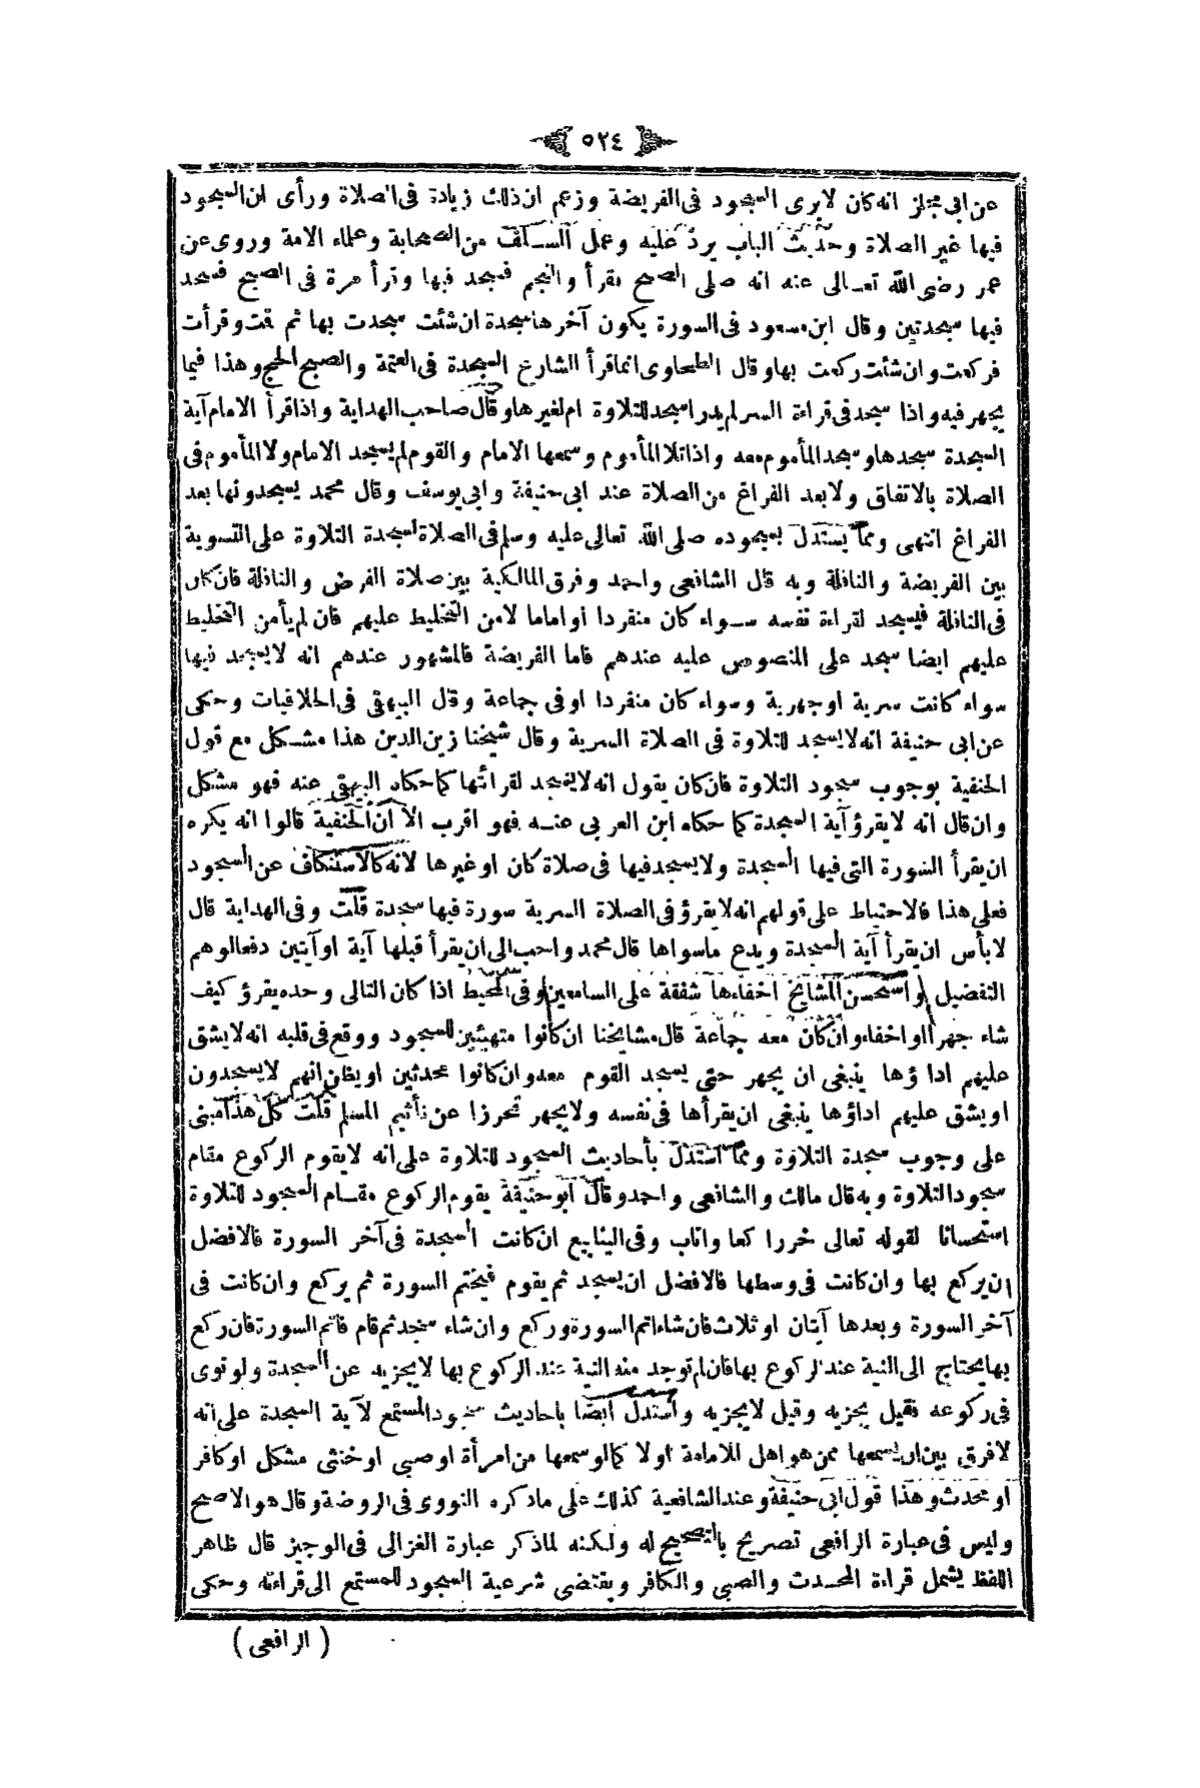 ٥٢٤
عن ابى مجلز انه كان لايرى السجود فى الفريضة وزعم ان ذلك زيادة فى الصلاة ورأى ان السجود
فيها غير الصلاة وحديث الباب يرد عليه وعمل السلف من الصحابة وعلماء الامة وروى عن
عمر رضى الله تعالى عنه انه صلى الصبح فقرأ والنجم فسجد فيها وقرأ مرة فى الصبح فسجد
فيها سجدتين وقال ابن مسعود فى السورة يكون آخرها سجدة ان شئت سجدت بها ثم قمت وقرأت
فركعت وان شئت ركعت بها وقال الطحاوى انما قرأ الشارع السجدة فى العتمة والصبح الحج وهذا فيما
يجهر فيه واذا سجد فى قراءة السر لم يدر اسجد للتلاوة ام لغيرها وقال صاحب الهداية واذا قرأ الامام آية
السجدة سجدها وسجد المأموم معه واذا تلا المأموم وسمعها الامام والقوم لم يسجد الامام ولا المأموم فى
الصلاة بالاتفاق ولا بعد الفراغ من الصلاة عند ابى حنيفة وابى يوسف وقال محمد يسجدونها بعد
الفراغ انتهى ومما يستدل بسجوده صلى الله تعالى عليه وسلم فى الصلاة لسجدة التلاوة على التسوية
بين الفريضة والنافلة وبه قال الشافعى واحمد وفرق المالكية بين صلاة الفرض والنافلة فان كان
فى النافلة فيسجد لقراءة نفسه سواء كان منفردا او اماما لامن التخليط عليهم فان لم يأمن التخليط
عليهم ايضا سجد على المنصوص عليه عندهم فاما الفريضة فالمشهور عندهم انه لايسجد فيها
سواء كانت سرية او جهرية وسواء كان منفردا او فى جماعة وقال البيهقى فى الخلافيات وحكى
عن ابى حنيفة انه لايسجد للتلاوة فى الصلاة السرية وقال شيخنا زين الدين هذا مشكل مع قول
الحنفية بوجوب سجود التلاوة فان كان يقول انه لايسجد لقرائتها كما حكاه البيهقى عنه فهو مشكل
وان قال انه لايقرؤ آية السجدة كما حكاه ابن العربى عنه فهو اقرب الا ان الحنفية قالوا انه يكره
ان يقرأ السورة التى فيها السجدة ولا يسجد فيها فى صلاة كان او غيرها لانه كالاستنكاف عن السجود
فعلى هذا فالاحتياط على قولهم انه لايقرؤ فى الصلاة السرية سورة فيها سجدة قلت وفى الهداية قال
لابأس ان يقرأ آية السجدة ويدع ماسواها قال محمد واحب الى ان يقرأ قبلها آية او آيتين دفعا لوهم
التفضيل واستحسن المشايخ اخفاءها شفقة على السامعين وفى المحيط اذا كان التالى وحده يقرؤ كيف
شاء جهرا او اخفاء وان كان معه جماعة قال مشايخنا ان كانوا متهيئين للسجود ووقع فى قلبه انه لايشق
عليهم اداؤها ينبغى ان يجهر حتى يسجد القوم معه وان كانوا محدثين او يظن انهم لايسجدون
او يشق عليهم اداؤها ينبغى ان يقرأها فى نفسه ولا يجهر تحرزا عن تأثيم المسلم قلت كل هذا مبنى
على وجوب سجدة التلاوة ومما استدل بأحاديث السجود للتلاوة على انه لايقوم الركوع مقام
سجود التلاوة وبه قال مالك والشافعى واحمد وقال ابو حنيفة يقوم الركوع مقام السجود للتلاوة
استحسانا لقوله تعالى خر راكعا واناب وفى الينابيع ان كانت السجدة فى آخر السورة فالافضل
ان يركع بها وان كانت فى وسطها فالافضل ان يسجد ثم يقوم فيختم السورة ثم يركع وان كانت فى
آخر السورة وبعدها آيتان او ثلاث فان شاء اتم السورة وركع وان شاء سجد ثم قام فاتم السورة فان ركع
بها يحتاج الى النية عند الركوع بها فان لم توجد منه النية عند الركوع بها لايجزيه عن السجدة ولو نوى
فى ركوعه فقيل يجزيه وقيل لايجزيه واستدل ايضا باحاديث سجود المستمع لآية السجدة على انه
لافرق بين ان يسمعها ممن هو اهل للامامة او لا كما لو سمعها من امرأة او صبى او خنثى مشكل او كافر
او محدث وهذا قول ابى حنيفة وعند الشافعية كذلك على ماذكره النووى فى الروضة وقال هو الاصح
وليس فى عبارة الرافعى تصريح بالتصحيح له ولكنه لماذكر عبارة الغزالى فى الوجيز قال ظاهر
اللفظ يشمل قراءة المحدث والصبى والكافر ويقتضى شرعية السجود للمستمع الى قراءته وحكى
(الرافعى)